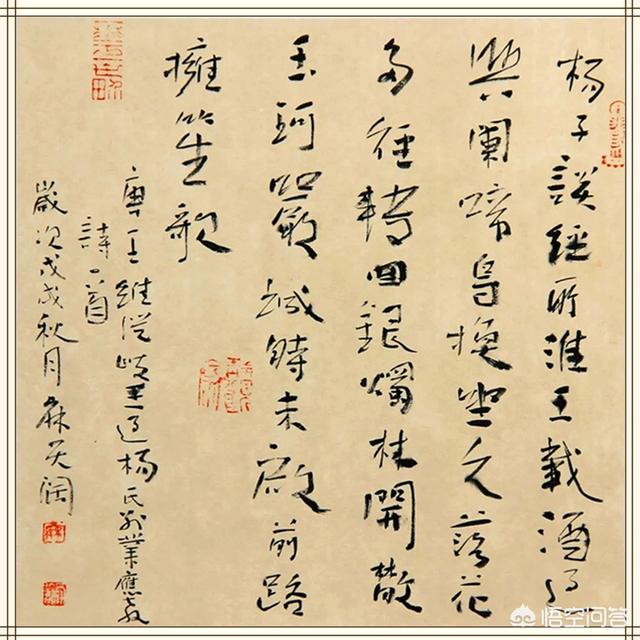 杨子談經所淮王載酒過
興闌啼鳥換坐久落花
多徑轉回銀燭林開散
玉珂嚴城時未啟前路
擁笙歌
唐王維從岐王過杨氏別業應教
詩一首
歲次戊戌秋月麻天阔
悟空问答